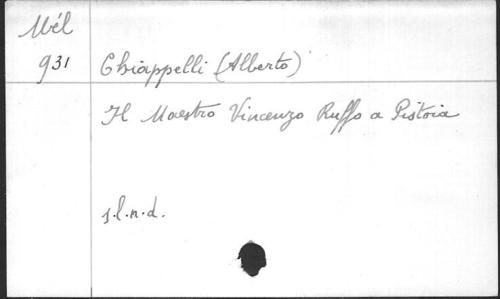 Mél
931 Chiappelli (Alberto)
Il Maestro Vincenzo Ruffo a Pistoia
s.l.n.d.